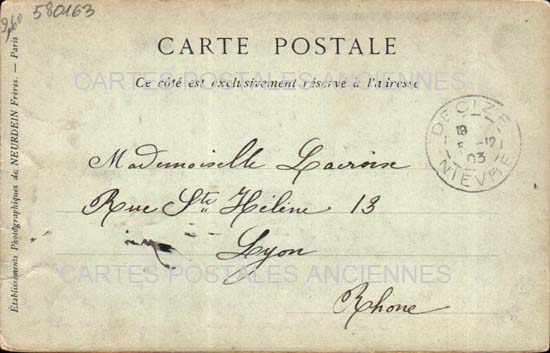 2,60
580163
CARTE POSTALE
Ce côté est exclusivement réservé à l'adresse
CARTES POSTALES ANCIENNES
DECIZE
18
-12
03
NIEVRE
Mademoiselle Lacroix
Rue Ste Hélène 13
Lyon
CARTES POSTALES ANCIENNES
Rhone
Établissements Photographiques de NEURDEIN Frères. — Paris